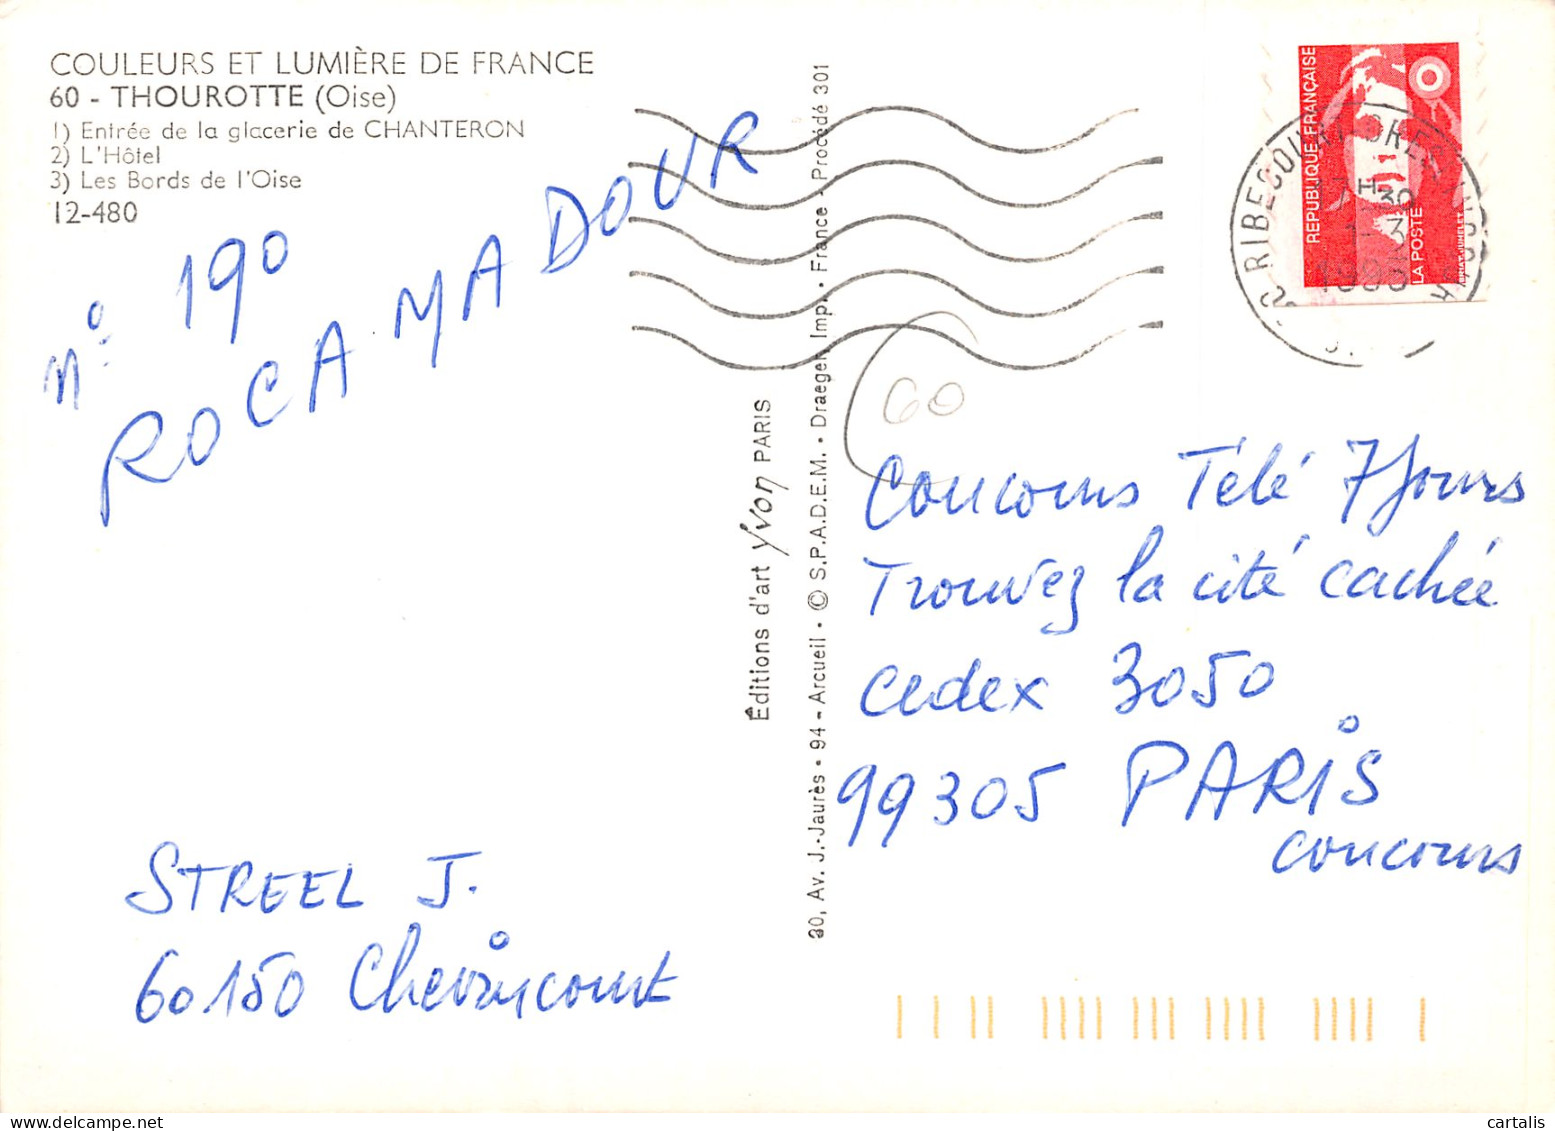 COULEURS ET LUMIÈRE DE FRANCE
60 - THOUROTTE (Oise)
1) Entrée de la glacerie de CHANTERON
2) L'Hôtel
3) Les Bords de l'Oise
12-480
n° 190
ROCAMADOUR
STREEL J.
60150 Chevincourt
Éditions d'art Yvon PARIS
30, Av. J.-Jaurès • 94 - Arcueil • © S.P.A.D.E.M. • Draeger, Imp. • France - Procédé 301
REPUBLIQUE FRANÇAISE
LA POSTE
RIBECOURT
60
Concours Télé 7 Jours
Trouvez la cité cachée
Cedex 3050
99305 PARIS
concours
cartalis